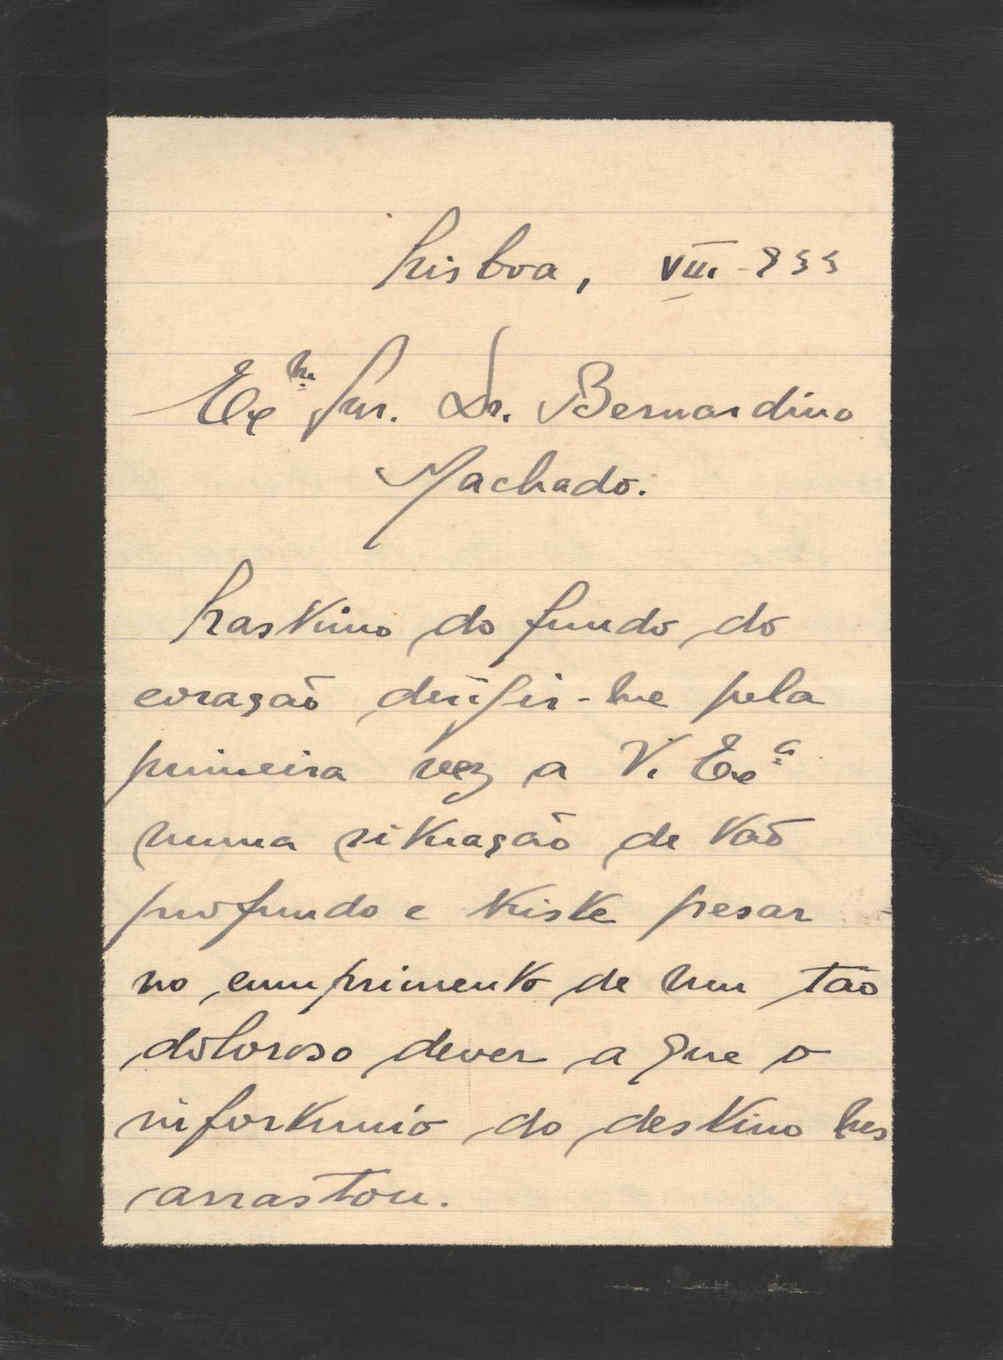 Lisboa, VIII-933
Ex.mo Snr. Dr. Bernardino
Machado.
Lastimo do fundo do
coração dirigir-me pela
primeira vez a V. Ex.a
numa situação de tão
profundo e triste pesar
no cumprimento de um tão
doloroso dever a que o
infortunio do destino
arrastou.